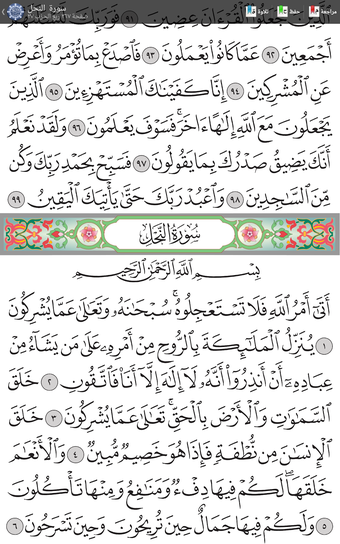 سورة النحل
صفحة ٢٦٧
تلاوة
حفظ
مراجعة
جَعَلُوا۟ ٱلْقُرْءَانَ عِضِينَ ﴿٩١﴾
أَجْمَعِينَ ﴿٩٢﴾ عَمَّا كَانُوا۟ يَعْمَلُونَ ﴿٩٣﴾ فَٱصْدَعْ بِمَا تُؤْمَرُ وَأَعْرِضْ
عَنِ ٱلْمُشْرِكِينَ ﴿٩٤﴾ إِنَّا كَفَيْنَٰكَ ٱلْمُسْتَهْزِءِينَ ﴿٩٥﴾ ٱلَّذِينَ
يَجْعَلُونَ مَعَ ٱللَّهِ إِلَٰهًا ءَاخَرَ ۚ فَسَوْفَ يَعْلَمُونَ ﴿٩٦﴾ وَلَقَدْ نَعْلَمُ
أَنَّكَ يَضِيقُ صَدْرُكَ بِمَا يَقُولُونَ ﴿٩٧﴾ فَسَبِّحْ بِحَمْدِ رَبِّكَ وَكُن
مِّنَ ٱلسَّٰجِدِينَ ﴿٩٨﴾ وَٱعْبُدْ رَبَّكَ حَتَّىٰ يَأْتِيَكَ ٱلْيَقِينُ ﴿٩٩﴾
سُورَةُ النَّحْلِ
بِسْمِ ٱللَّهِ ٱلرَّحْمَٰنِ ٱلرَّحِيمِ
أَتَىٰٓ أَمْرُ ٱللَّهِ فَلَا تَسْتَعْجِلُوهُ ۚ سُبْحَٰنَهُۥ وَتَعَٰلَىٰ عَمَّا يُشْرِكُونَ
﴿١﴾ يُنَزِّلُ ٱلْمَلَٰٓئِكَةَ بِٱلرُّوحِ مِنْ أَمْرِهِۦ عَلَىٰ مَن يَشَآءُ مِنْ
عِبَادِهِۦٓ أَنْ أَنذِرُوٓا۟ أَنَّهُۥ لَآ إِلَٰهَ إِلَّآ أَنَا۠ فَٱتَّقُونِ ﴿٢﴾ خَلَقَ
ٱلسَّمَٰوَٰتِ وَٱلْأَرْضَ بِٱلْحَقِّ ۚ تَعَٰلَىٰ عَمَّا يُشْرِكُونَ ﴿٣﴾ خَلَقَ
ٱلْإِنسَٰنَ مِن نُّطْفَةٍ فَإِذَا هُوَ خَصِيمٌ مُّبِينٌ ﴿٤﴾ وَٱلْأَنْعَٰمَ
خَلَقَهَا ۗ لَكُمْ فِيهَا دِفْءٌ وَمَنَٰفِعُ وَمِنْهَا تَأْكُلُونَ
﴿٥﴾ وَلَكُمْ فِيهَا جَمَالٌ حِينَ تُرِيحُونَ وَحِينَ تَسْرَحُونَ ﴿٦﴾